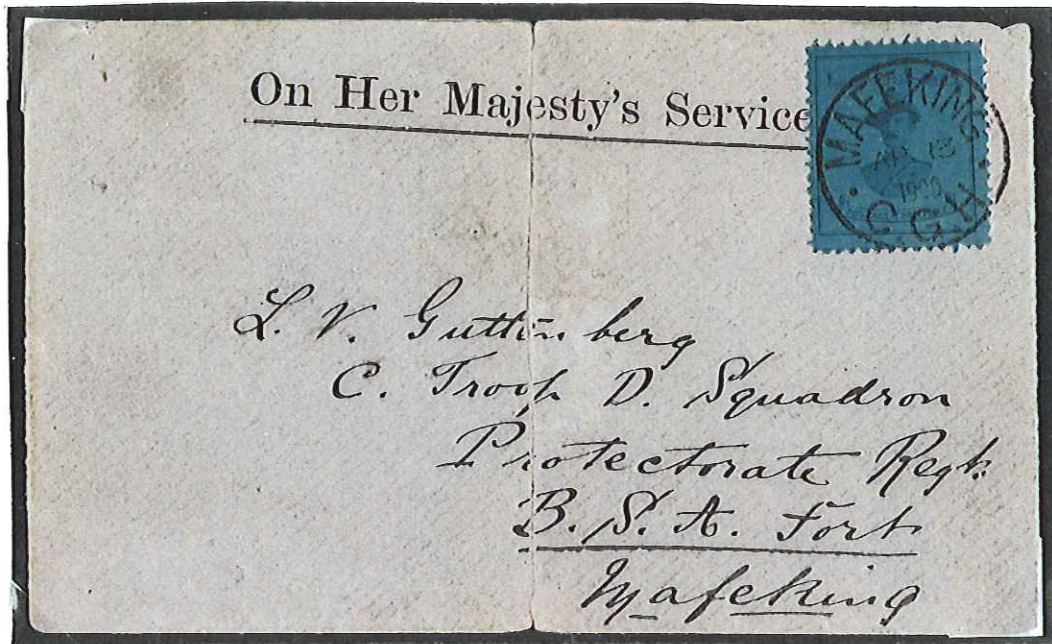 On Her Majesty's Service
MAFEKING
AP 13
1900
C.G.H
L. V. Guttenberg
C. Troop D. Squadron
Protectorate Regt.
B. S. A. Fort
Mafeking